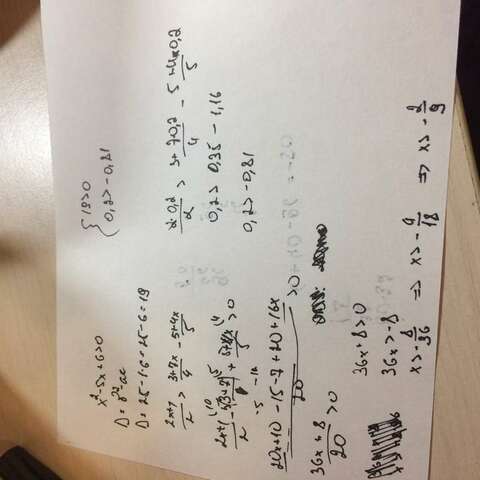 x² - 5x + 6 > 0
D = b² - ac
D = 25 - 1·6 = 25 - 6 = 19
2x+1/2 > 3+7x/4 - 5+4x/5
2x+1/2 - 3+7x/4 + 5+4x/5 > 0
20x+10 - 15 - 7 + 20 + 16x/20 > 0
36x + 8/20 > 0
36x + 8 > 0
36x > -8
x > - 8/36 ⇒ x > - 4/18 ⇒ x > - 2/9
{ 19 > 0
0,2 > - 0,81
2·0,2/2 > 3+7·0,2/4 - 5+4·0,2/5
0,2 > 0,35 - 1,16
0,2 > -0,81